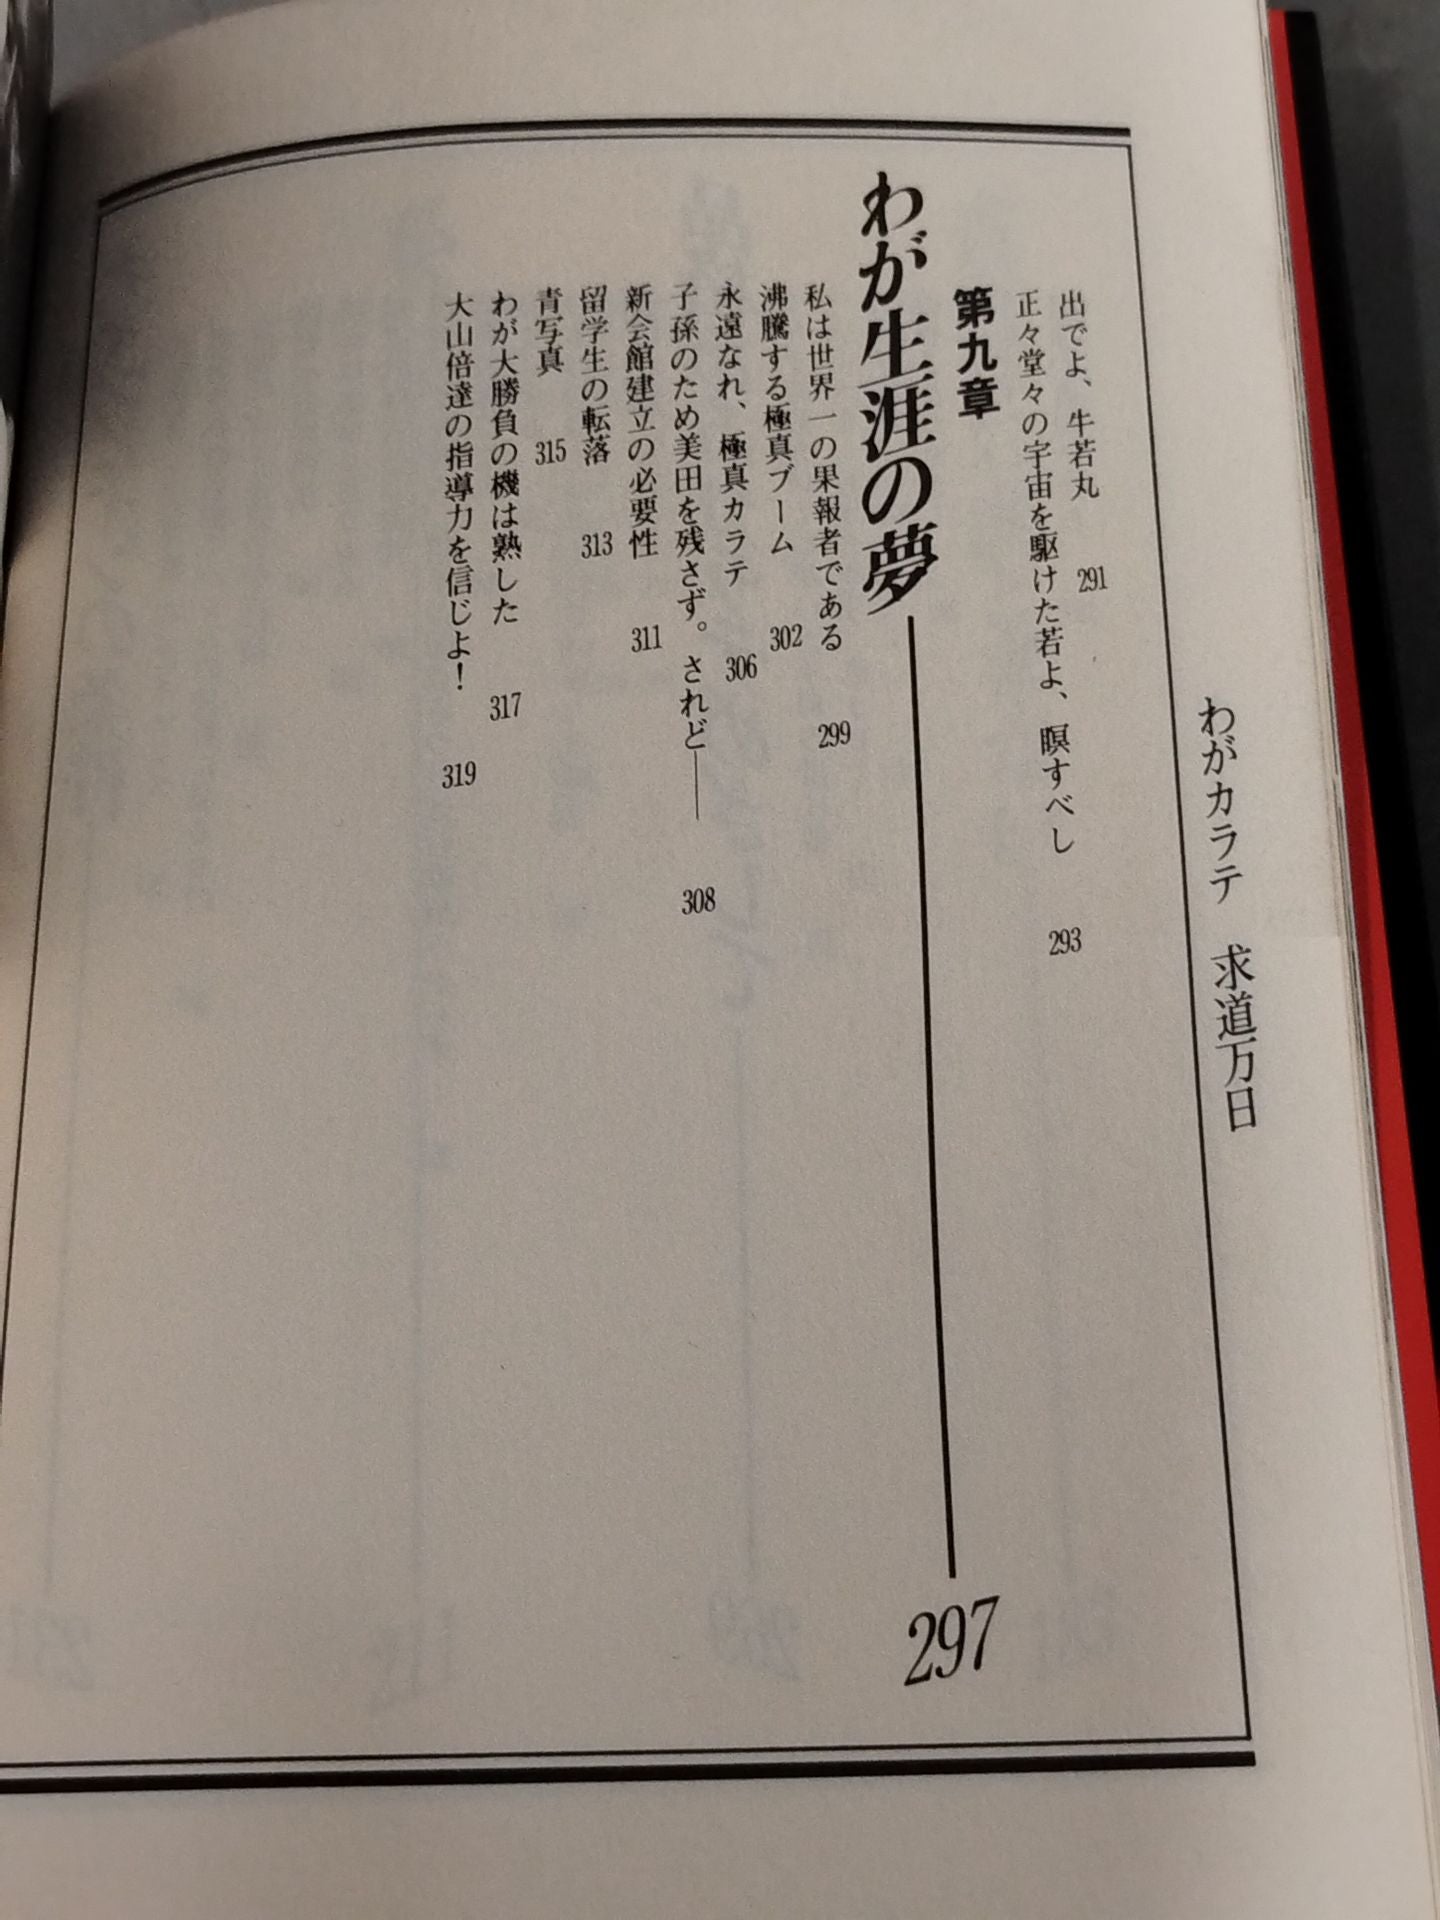 わがカラテ　求道万日
出でよ、牛若丸　291
正々堂々の宇宙を駆けた若よ、瞑すべし　293
第九章
わが生涯の夢――297
私は世界一の果報者である　299
沸騰する極真ブーム　302
永遠なれ、極真カラテ　306
子孫のため美田を残さず。されど――　308
新会館建立の必要性　311
留学生の転落　313
青写真　315
わが大勝負の機は熟した　317
大山倍達の指導力を信じよ！　319